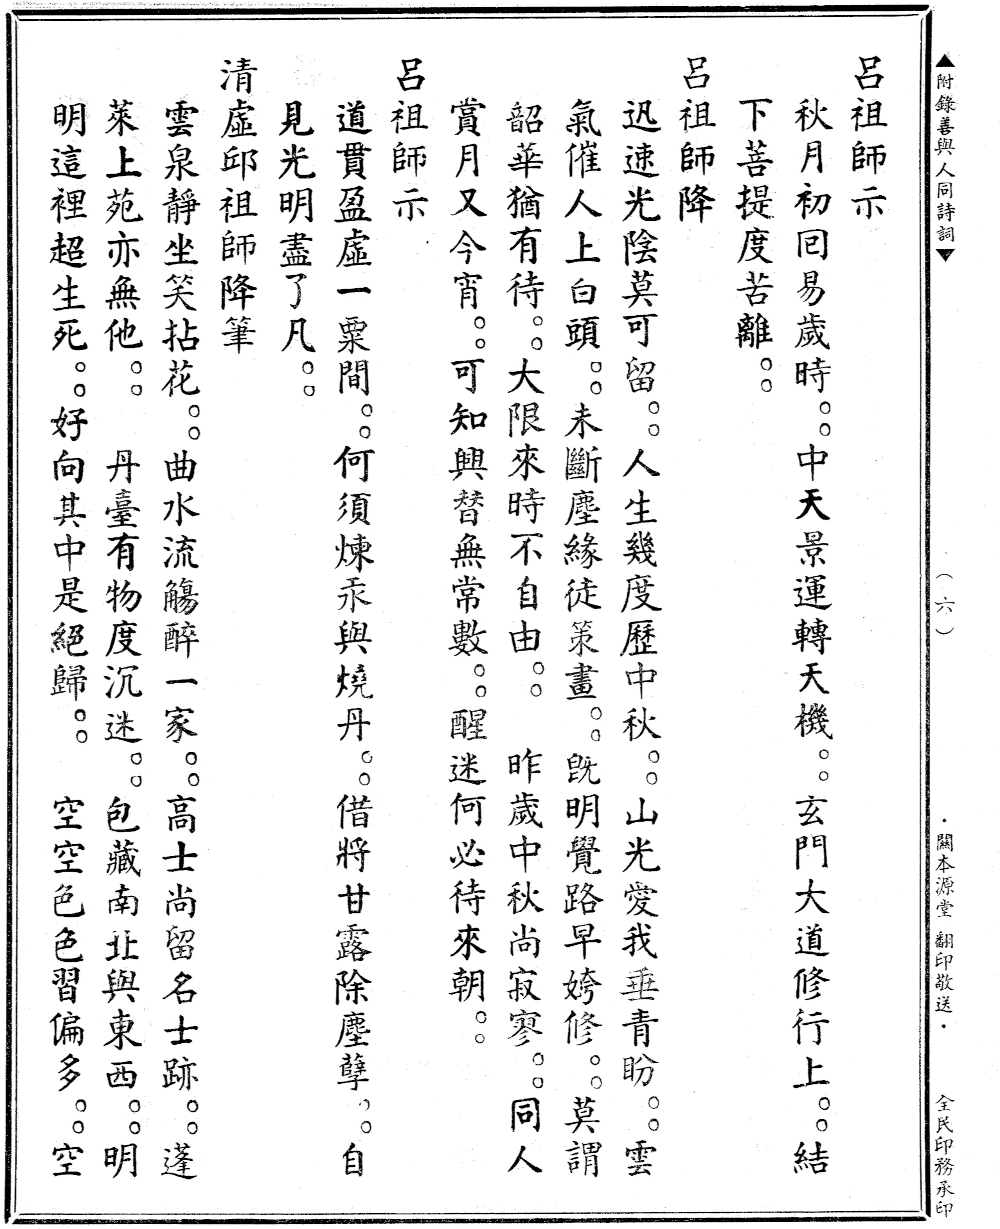 ▲附錄善與人同詩詞▼
(六)
・闕本源堂 翻印敬送・
全民印務承印
呂祖師示
秋月初囘易歲時。。中天景運轉天機。。玄門大道修行上。。結
下菩提度苦離。。
呂祖師降
迅速光陰莫可留。。人生幾度歷中秋。。山光愛我垂青盼。。雲
氣催人上白頭。。未斷塵緣徒策畫。。既明覺路早姱修。。莫謂
韶華猶有待。。大限來時不自由。。 昨歲中秋尚寂寥。。同人
賞月又今宵。。可知興替無常數。。醒迷何必待來朝。。
呂祖師示
道貫盈虛一粟間。。何須煉汞與燒丹。。借將甘露除塵孽。。自
見光明盡了凡。。
清虛邱祖師降筆
雲泉靜坐笑拈花。。曲水流觴醉一家。。高士尚留名士跡。。蓬
萊上苑亦無他。。 丹臺有物度沉迷。。包藏南北與東西。。明
明這裡超生死。。好向其中是絕歸。。 空空色色習偏多。。空